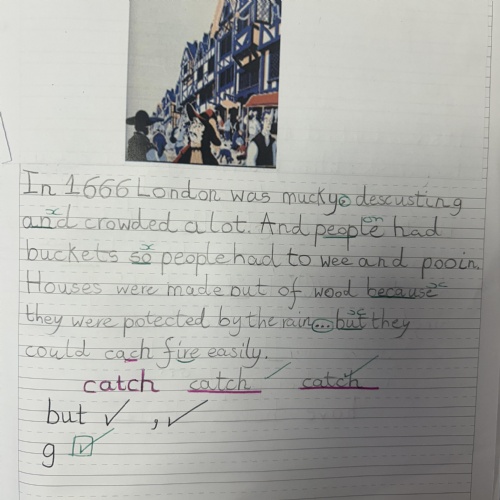 In 1666 London was mucky, descusting
and crowded a lot. And people had
buckets so people had to wee and pooin.
Houses were made out of wood because
they were potected by the rain... but they
could cach fire easily.
catch catch catch
but ✓ , ✓
g ✓